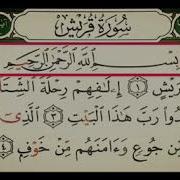 سُورَةُ قُرَيْشٍ
بِسْمِ ٱللَّهِ ٱلرَّحْمَٰنِ ٱلرَّحِيمِ
رَيْشٍ ١ إِۦلَٰفِهِمْ رِحْلَةَ ٱلشِّتَا
دُوا۟ رَبَّ هَٰذَا ٱلْبَيْتِ ٣ ٱلَّذِىٓ
مِّن جُوعٍ وَءَامَنَهُم مِّنْ خَوْفٍۭ ٤